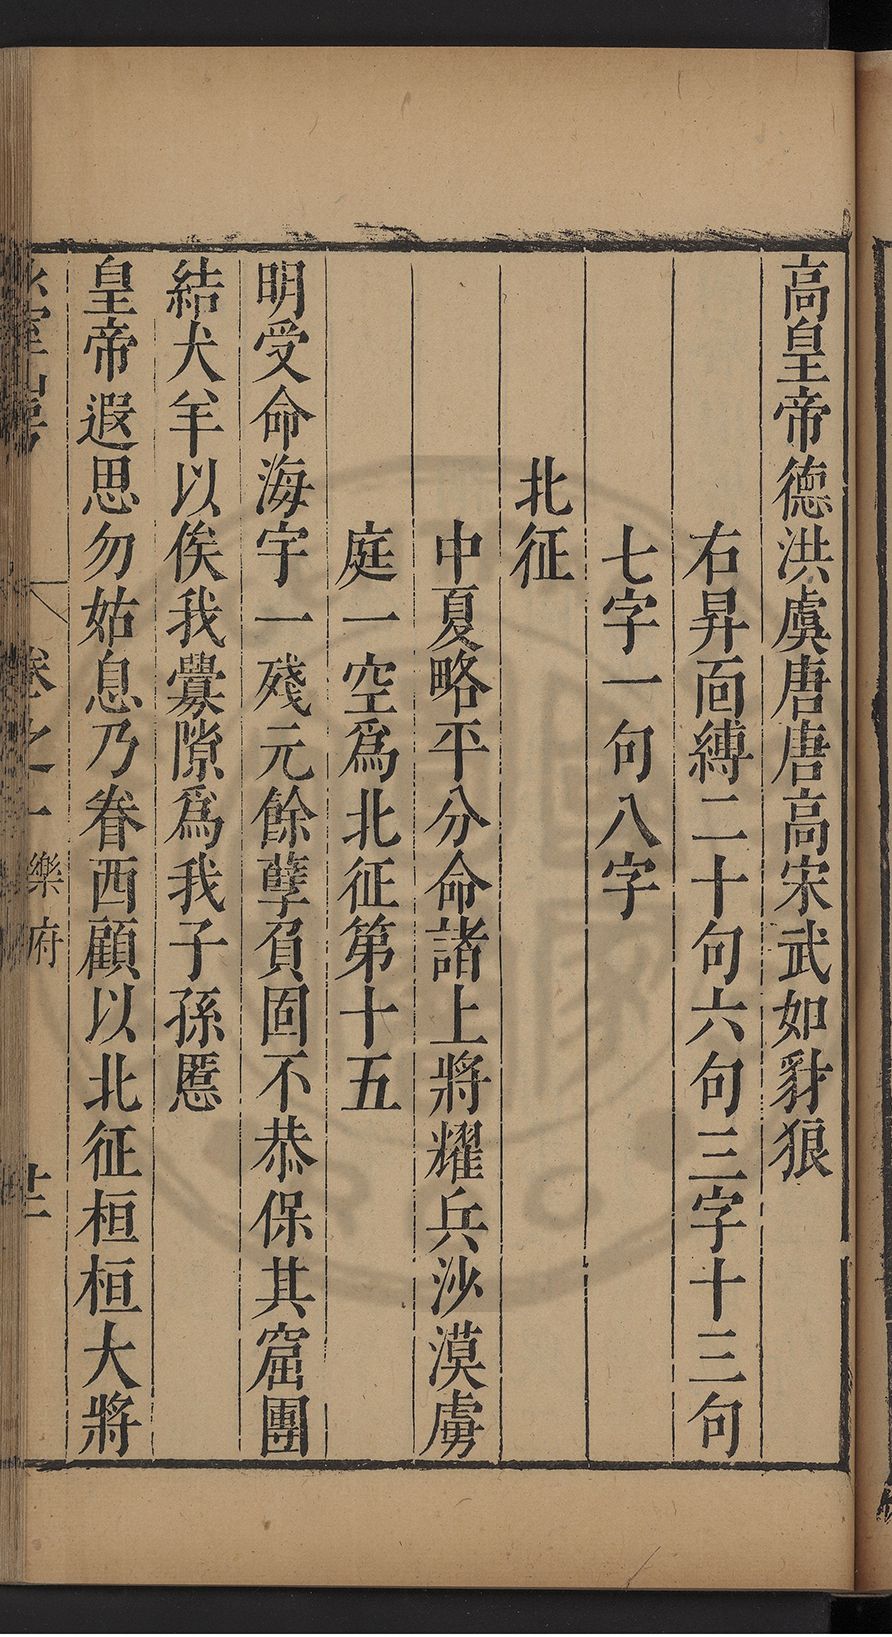 高皇帝德洪虞唐唐高宋武如豺狼
右昇面縛二十句六句三字十三句
七字一句八字
北征
中夏略平分命諸上將耀兵沙漠虜
庭一空爲北征第十五
明受命海宇一殘元餘孽負固不恭保其窟團
結犬羊以俟我釁隙爲我子孫慝
皇帝遐思勿姑息乃眷西顧以北征桓桓大將
卷之一 樂府